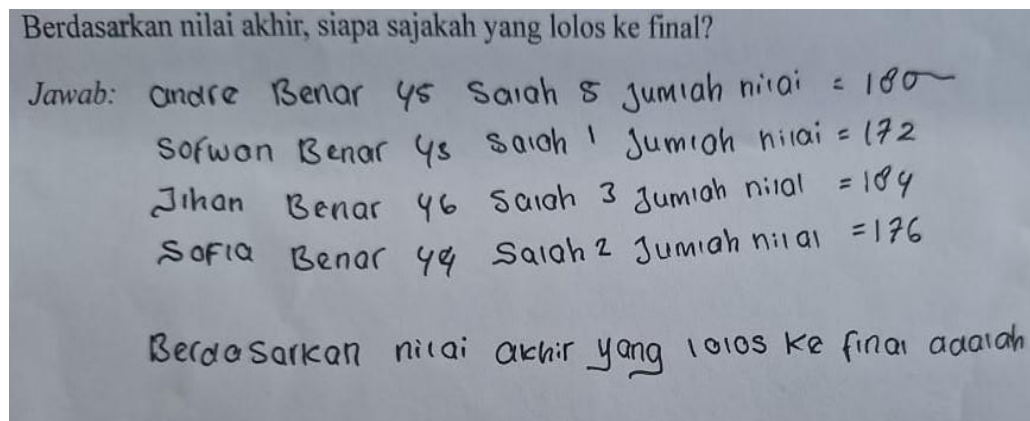 Berdasarkan nilai akhir, siapa sajakah yang lolos ke final?
Jawab: andre Benar 45 Salah 5 Jumlah nilai = 180
Sofwan Benar 43 Salah 1 Jumlah nilai = 172
Jihan Benar 46 Salah 3 Jumlah nilai = 184
Sofia Benar 44 Salah 2 Jumlah nilai = 176
Berdasarkan nilai akhir yang lolos ke final adalah